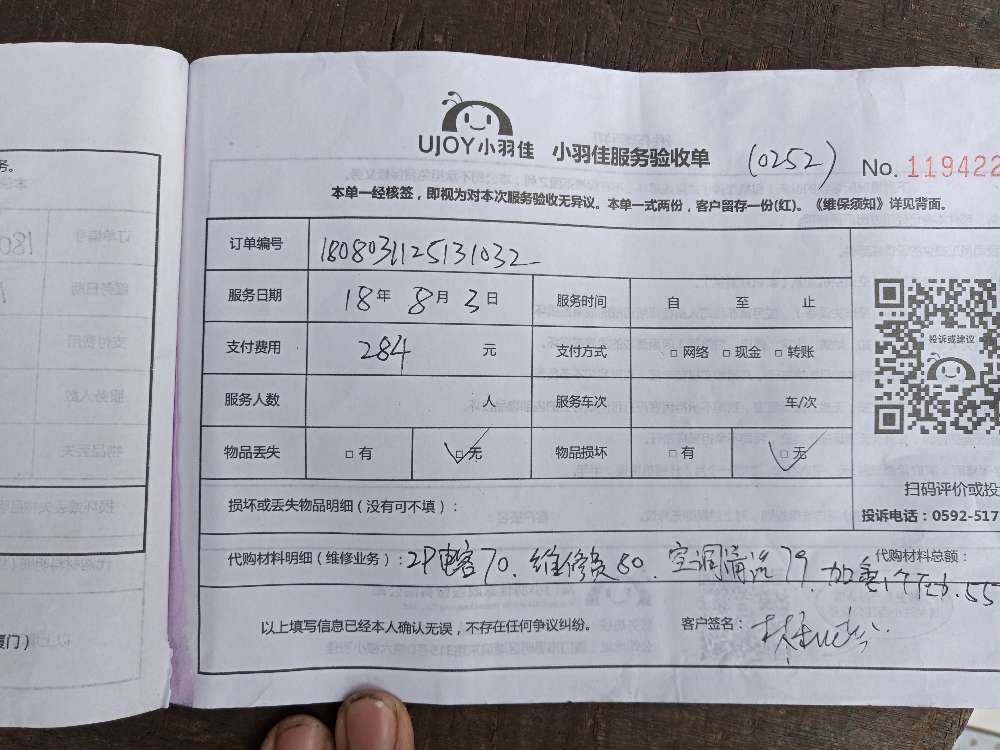 UJOY小羽佳 小羽佳服务验收单 (0252) No. 119422
本单一经核签，即视为对本次服务验收无异议。本单一式两份，客户留存一份(红)。《维保须知》详见背面。
订单编号 1808031125131032
服务日期 18年 8月 3日 服务时间 自 至 止
支付费用 284 元 支付方式 □ 网络 □ 现金 □ 转账
投诉或建议
服务人数 人 服务车次 车/次
物品丢失 □ 有 □ 无 物品损坏 □ 有 □ 无
扫码评价或投
损坏或丢失物品明细（没有可不填）：
投诉电话：0592-517
代购材料明细（维修业务）：2P电容70、维修费80、空调清洗79、加氟1个压力.55
代购材料总额：
以上填写信息已经本人确认无误，不存在任何争议纠纷。 客户签名：
务。
厦门）